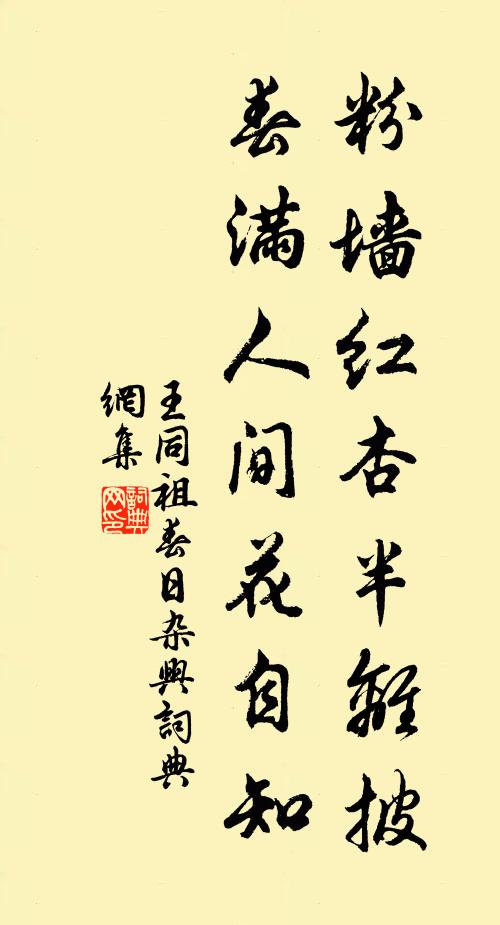 粉墙红杏半離披
春满人间花自知
王同祖春日杂興詞典
網集
詞典
网印